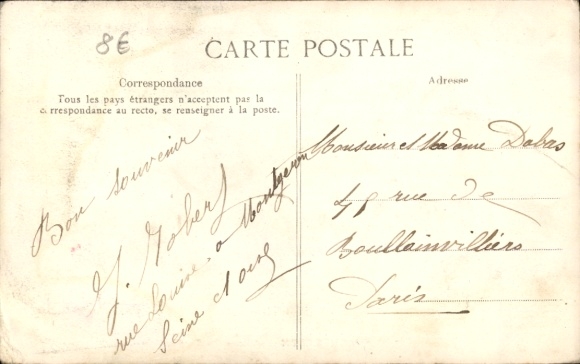 8€
CARTE POSTALE
Correspondance
Tous les pays étrangers n'acceptent pas la
correspondance au recto, se renseigner à la poste.
Adresse
Bon souvenir
J. Robert
rue Louise à Montgeron
Seine et oise
Monsieur et Madame Dabas
45 rue de
Boullainvilliers
Paris